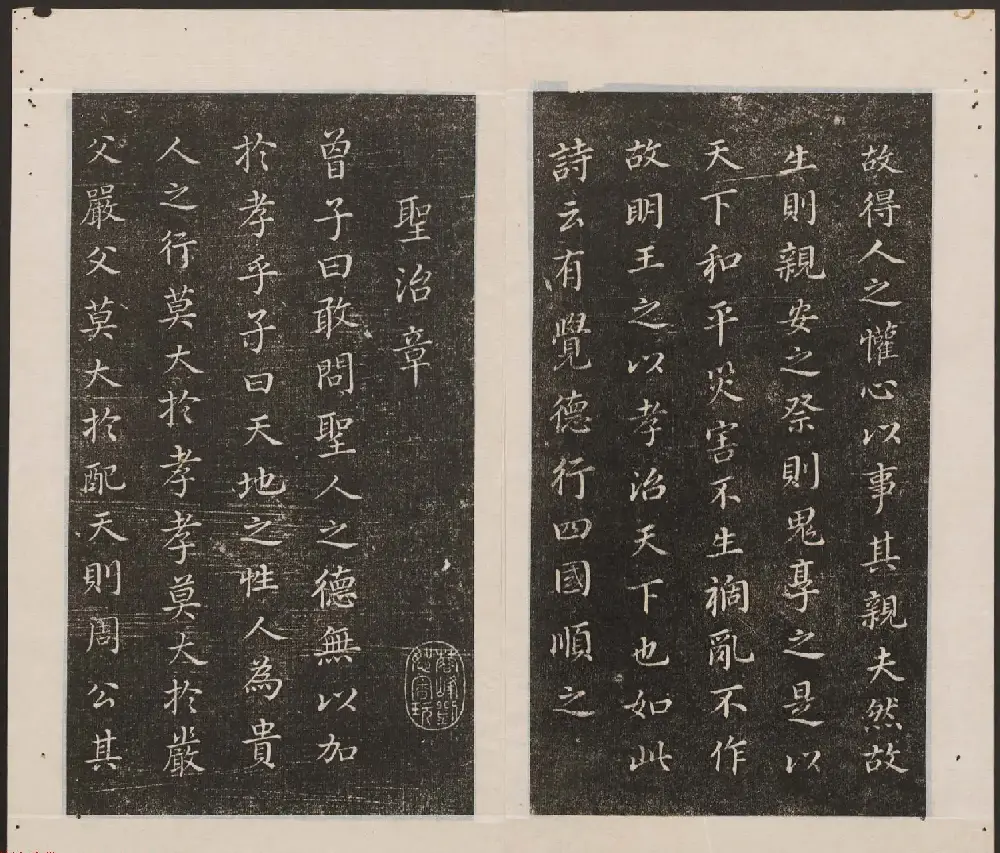 故得人之懽心以事其親夫然故
生則親安之祭則鬼享之是以
天下和平災害不生禍亂不作
故明王之以孝治天下也如此
詩云有覺德行四國順之
聖治章
曾子曰敢問聖人之德無以加
於孝乎子曰天地之性人為貴
人之行莫大於孝孝莫大於嚴
父嚴父莫大於配天則周公其